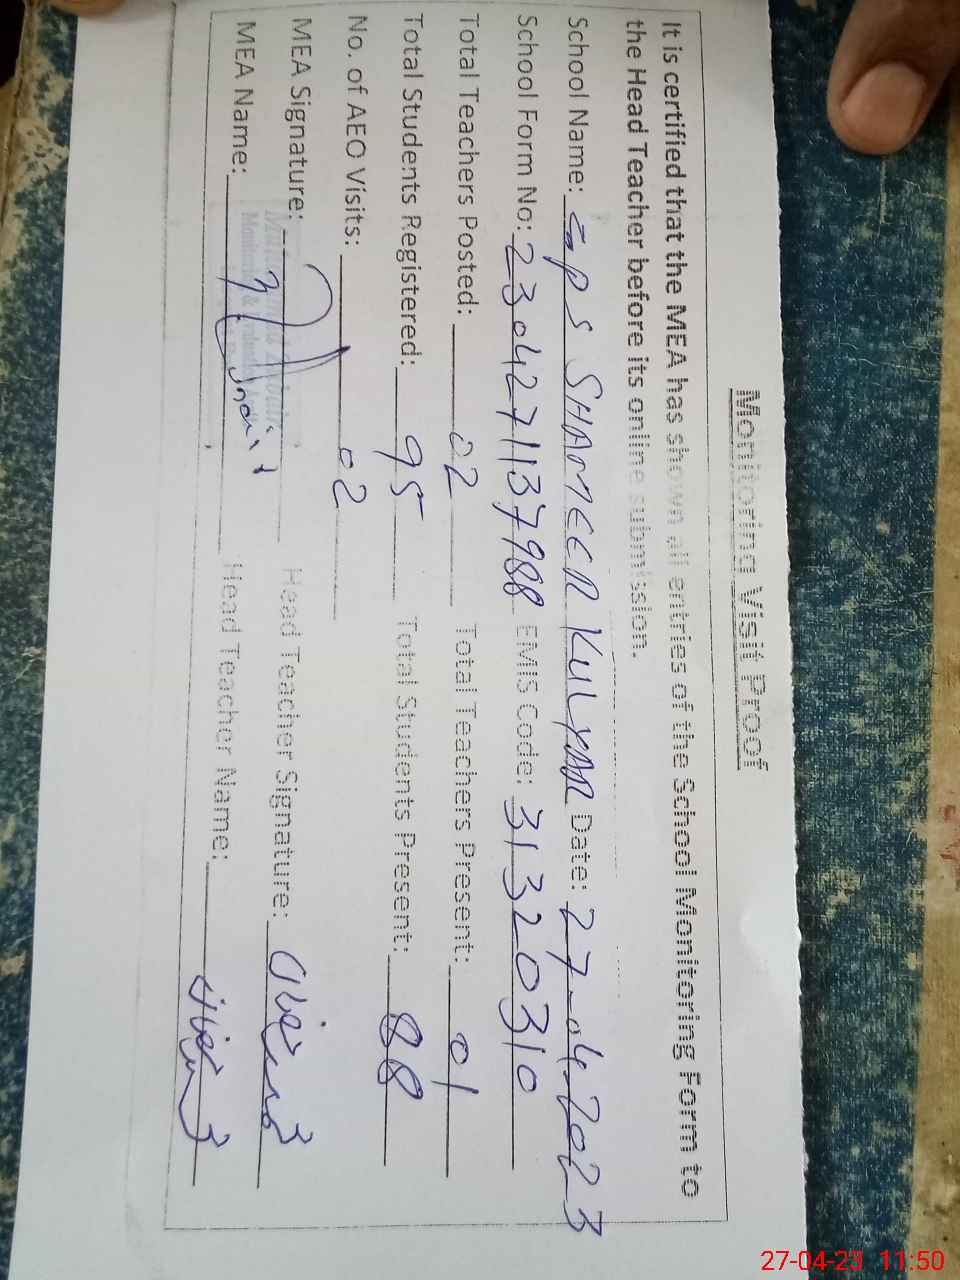 Monitoring Visit Proof
It is certified that the MEA has shown all entries of the School Monitoring Form to
the Head Teacher before its online submission.
School Name: GPS SHAMEER KULYAR Date: 27-04-2023
School Form No: 2304271137988 EMIS Code: 31320310
Total Teachers Posted: 02 Total Teachers Present: 01
Total Students Registered: 95 Total Students Present: 88
No. of AEO Visits: 02
MEA Signature: Head Teacher Signature:
MEA Name: Head Teacher Name:
27-04-23 11:50